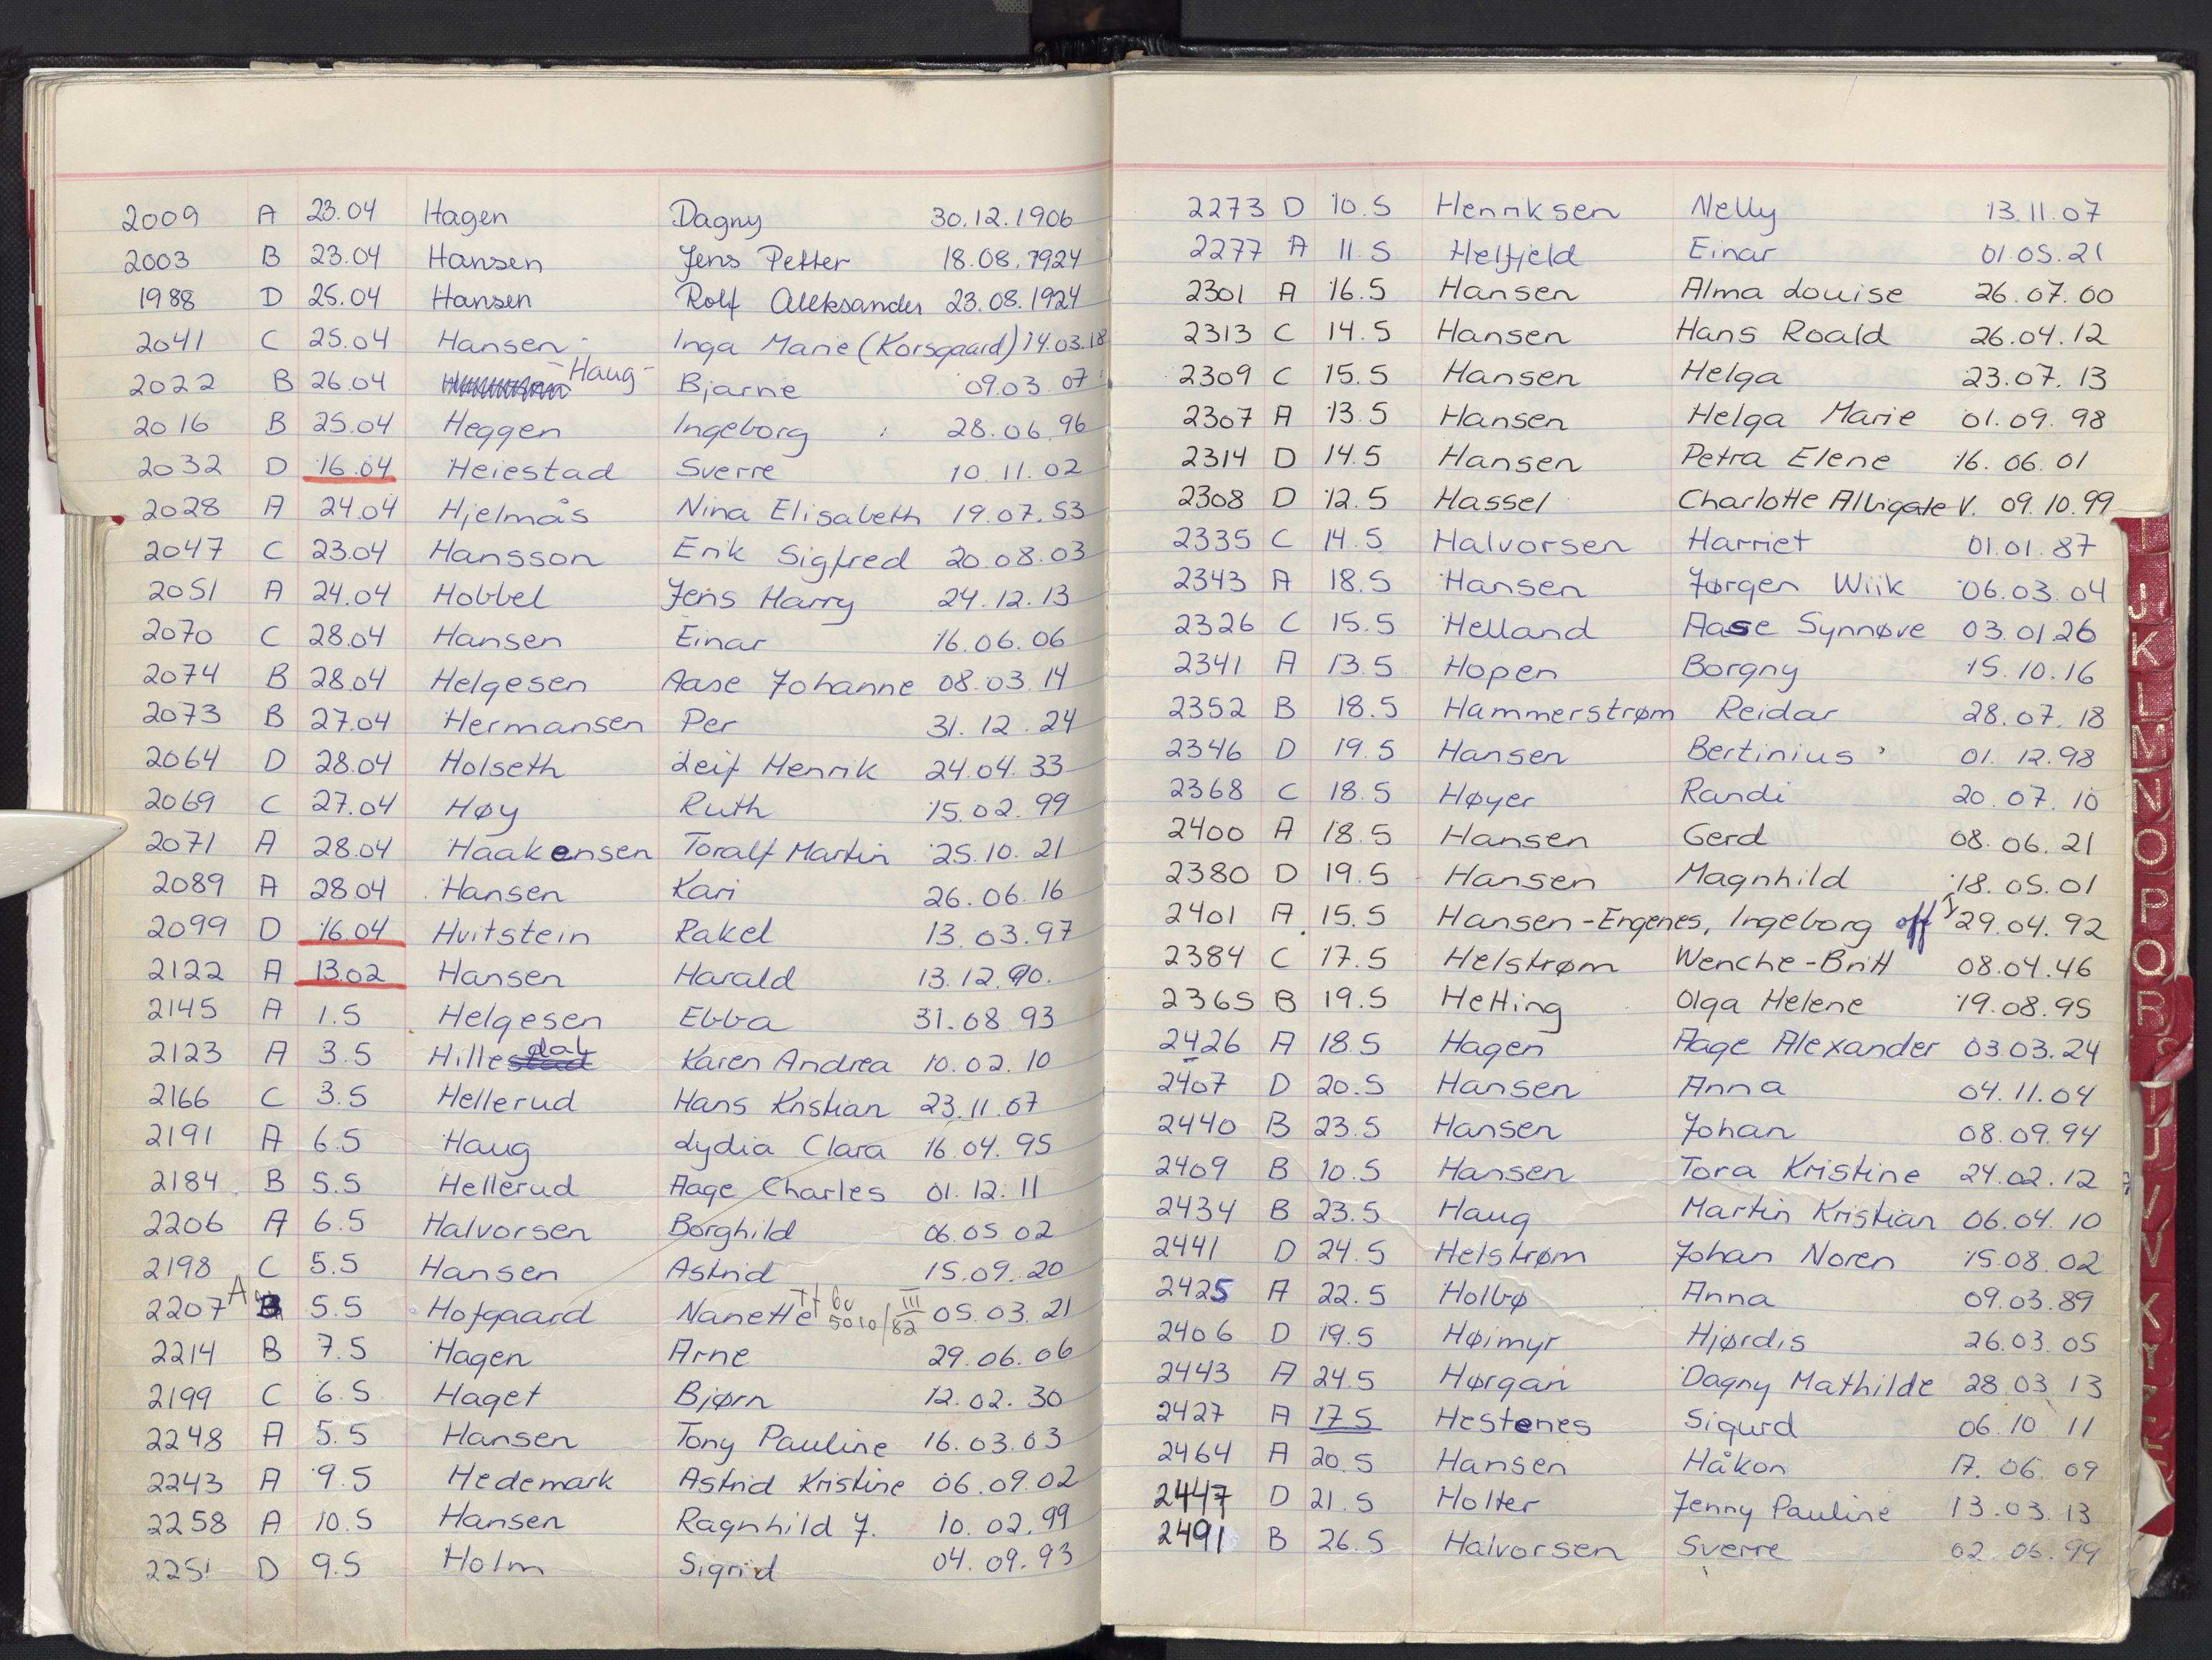 2009 A 23.04 Hagen Dagny 30.12.1906
2003 B 23.04 Hansen Jens Petter 18.08.1924
1988 D 25.04 Hansen Rolf Aleksander 23.08.1924
2041 C 25.04 Hansen Inga Marie (Korsgaard) 14.03.18
2022 B 26.04 -Haug- Bjarne 09.03.07
2016 B 25.04 Heggen Ingeborg 28.06.96
2032 D 16.04 Heiestad Sverre 10.11.02
2028 A 24.04 Hjelmås Nina Elisabeth 19.07.53
2047 C 23.04 Hansson Erik Sigfred 20.08.03
2051 A 24.04 Hobbel Jens Harry 24.12.13
2070 C 28.04 Hansen Einar 16.06.06
2074 B 28.04 Helgesen Aase Johanne 08.03.14
2073 B 27.04 Hermansen Per 31.12.24
2064 D 28.04 Holseth Leif Henrik 24.04.33
2069 C 27.04 Høy Ruth 15.02.99
2071 A 28.04 Haakensen Toralf Martin 25.10.21
2089 A 28.04 Hansen Kari 26.06.16
2099 D 16.04 Hvitstein Rakel 13.03.97
2122 A 13.02 Hansen Harald 13.12.90.
2145 A 1.5 Helgesen Ebba 31.08.93
2123 A 3.5 Hillestad dal Karen Andrea 10.02.10
2166 C 3.5 Hellerud Hans Kristian 23.11.07
2191 A 6.5 Haug Lydia Clara 16.04.95
2184 B 5.5 Hellerud Aage Charles 01.12.11
2206 A 6.5 Halvorsen Borghild 06.05.02
2198 C 5.5 Hansen Astrid 15.09.20
2207 A B 5.5 Hofgaard Nanette 5010/82 III 05.03.21
2214 B 7.5 Hagen Arne 29.06.06
2199 C 6.5 Haget Bjørn 12.02.30
2248 A 5.5 Hansen Tony Pauline 16.03.03
2243 A 9.5 Hedemark Astrid Kristine 06.09.02
2258 A 10.5 Hansen Ragnhild J. 10.02.99
2251 D 9.5 Holm Sigrid 04.09.93
2273 D 10.5 Henriksen Nelly 13.11.07
2277 A 11.5 Helfjeld Einar 01.05.21
2301 A 16.5 Hansen Alma Louise 26.07.00
2313 C 14.5 Hansen Hans Roald 26.04.12
2309 C 15.5 Hansen Helga 23.07.13
2307 A 13.5 Hansen Helga Marie 01.09.98
2314 D 14.5 Hansen Petra Elene 16.06.01
2308 D 12.5 Hassel Charlotte Albigate V. 09.10.99
2335 C 14.5 Halvorsen Harriet 01.01.87
2343 A 18.5 Hansen Jørgen Wiik 06.03.04
2326 C 15.5 Helland Aase Synnøve 03.01.26
2341 A 13.5 Hopen Borgny 15.10.16
2352 B 18.5 Hammerstrøm Reidar 28.07.18
2346 D 19.5 Hansen Bertinius 01.12.98
2368 C 18.5 Høyer Randi 20.07.10
2400 A 18.5 Hansen Gerd 08.06.21
2380 D 19.5 Hansen Magnhild 18.05.01
2401 A 15.5 Hansen-Engenes, Ingeborg off 29.04.92
2384 C 17.5 Helstrøm Wenche-Britt 08.04.46
2365 B 19.5 Hetting Olga Helene 19.08.95
2426 A 18.5 Hagen Aage Alexander 03.03.24
2407 D 20.5 Hansen Anna 04.11.04
2440 B 23.5 Hansen Johan 08.09.94
2409 B 10.5 Hansen Tora Kristine 24.02.12
2434 B 23.5 Haug Martin Kristian 06.04.10
2441 D 24.5 Helstrøm Johan Noren 15.08.02
2425 A 22.5 Holbø Anna 09.03.89
2406 D 19.5 Høimyr Hjørdis 26.03.05
2443 A 24.5 Hørgan Dagny Mathilde 28.03.13
2427 A 17.5 Hestenes Sigurd 06.10.11
2464 A 20.5 Hansen Håkon 17.06.09
2447 D 21.5 Holter Jenny Pauline 13.03.13
2491 B 26.5 Halvorsen Sverre 02.06.99
I
J
K
L
M
N
O
P
Q
R
U
V
X
Y